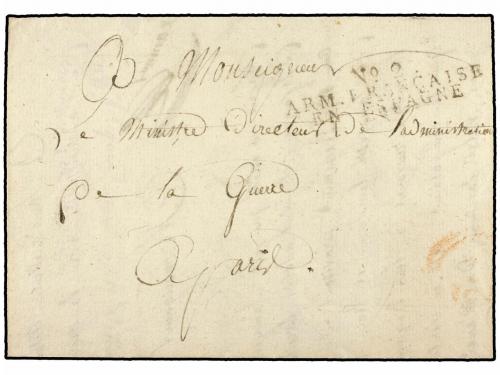 A Monseigneur
No 9
ARM. FRANÇAISE
EN ESPAGNE
Le Ministre Directeur de l'administration
De la Guerre
A paris.